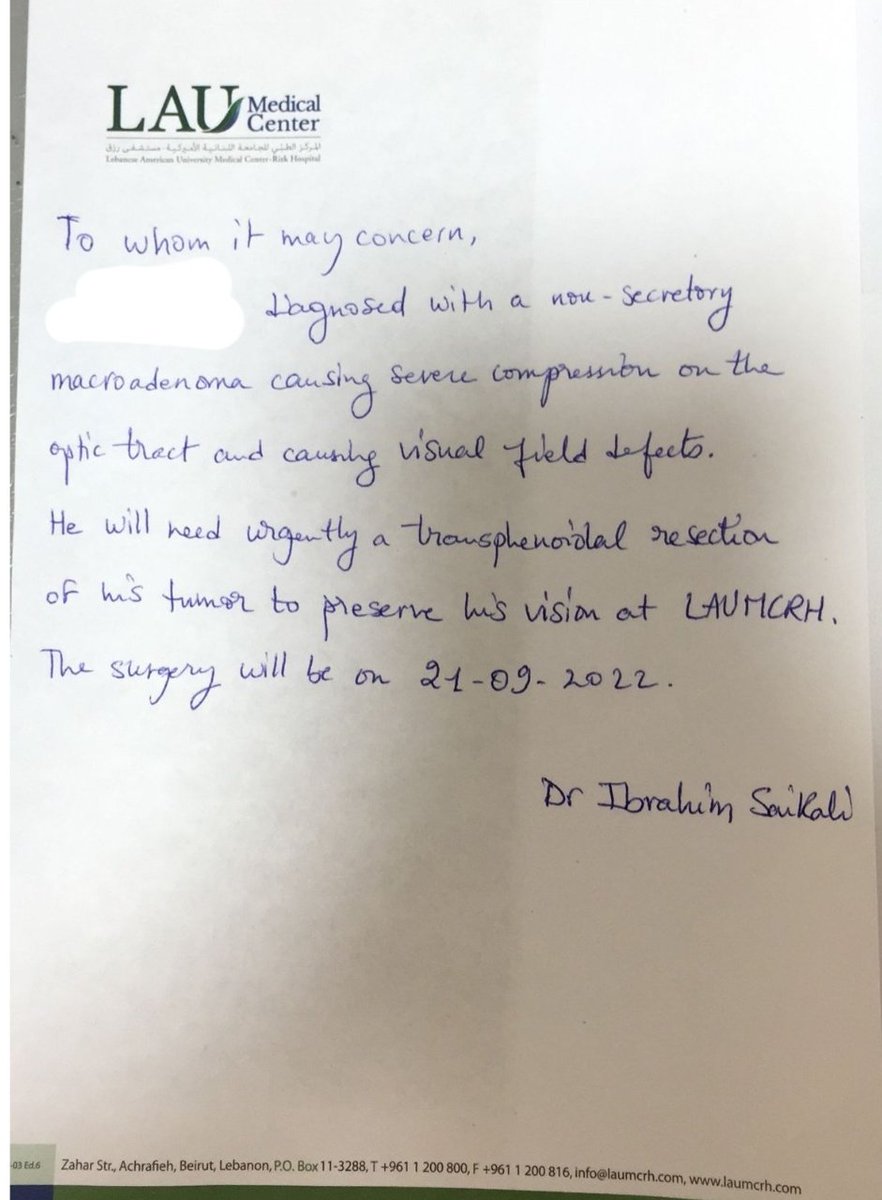 LAU Medical Center
المركز الطبي للجامعة اللبنانية الأميركية - مستشفى رزق
Lebanese American University Medical Center-Rizk Hospital
To whom it may concern,
Diagnosed with a non-secretory
macroadenoma causing severe compression on the
optic tract and causing visual field defects.
He will need urgently a transphenoidal resection
of his tumor to preserve his vision at LAUMCRH.
The surgery will be on 21-09-2022.
Dr Ibrahim Saikali
-03 Ed.6
Zahar Str., Achrafieh, Beirut, Lebanon, P.O. Box 11-3288, T +961 1 200 800, F +961 1 200 816, info@laumcrh.com, www.laumcrh.com